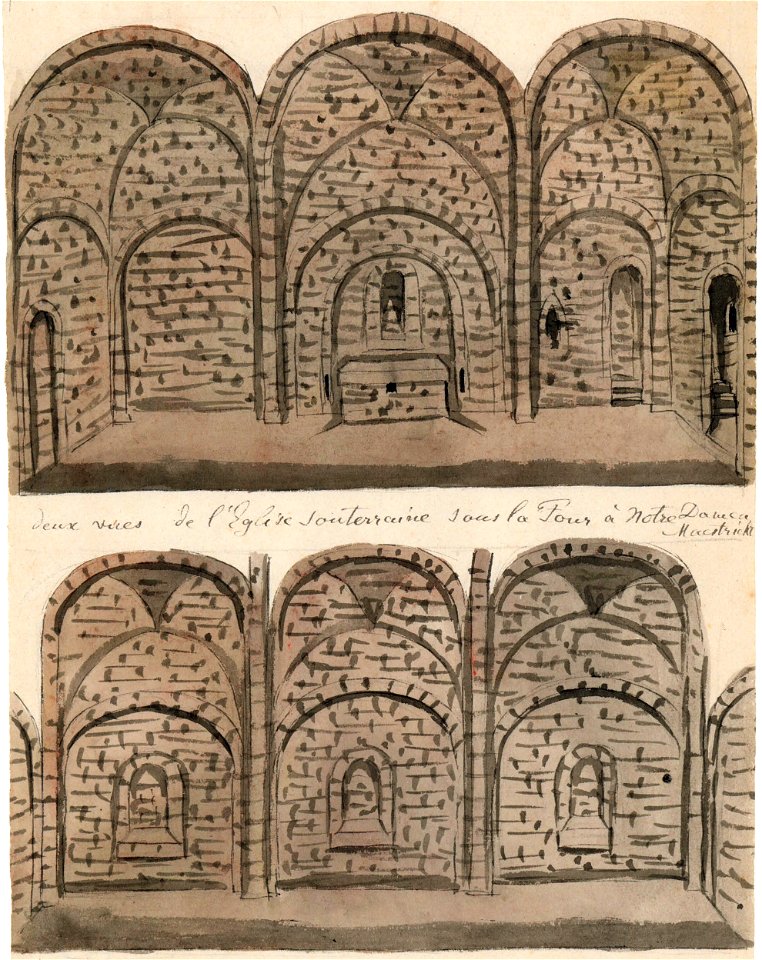 deux vues de l'Eglise souterraine sous la Tour à Notre Dame a
Maestricht